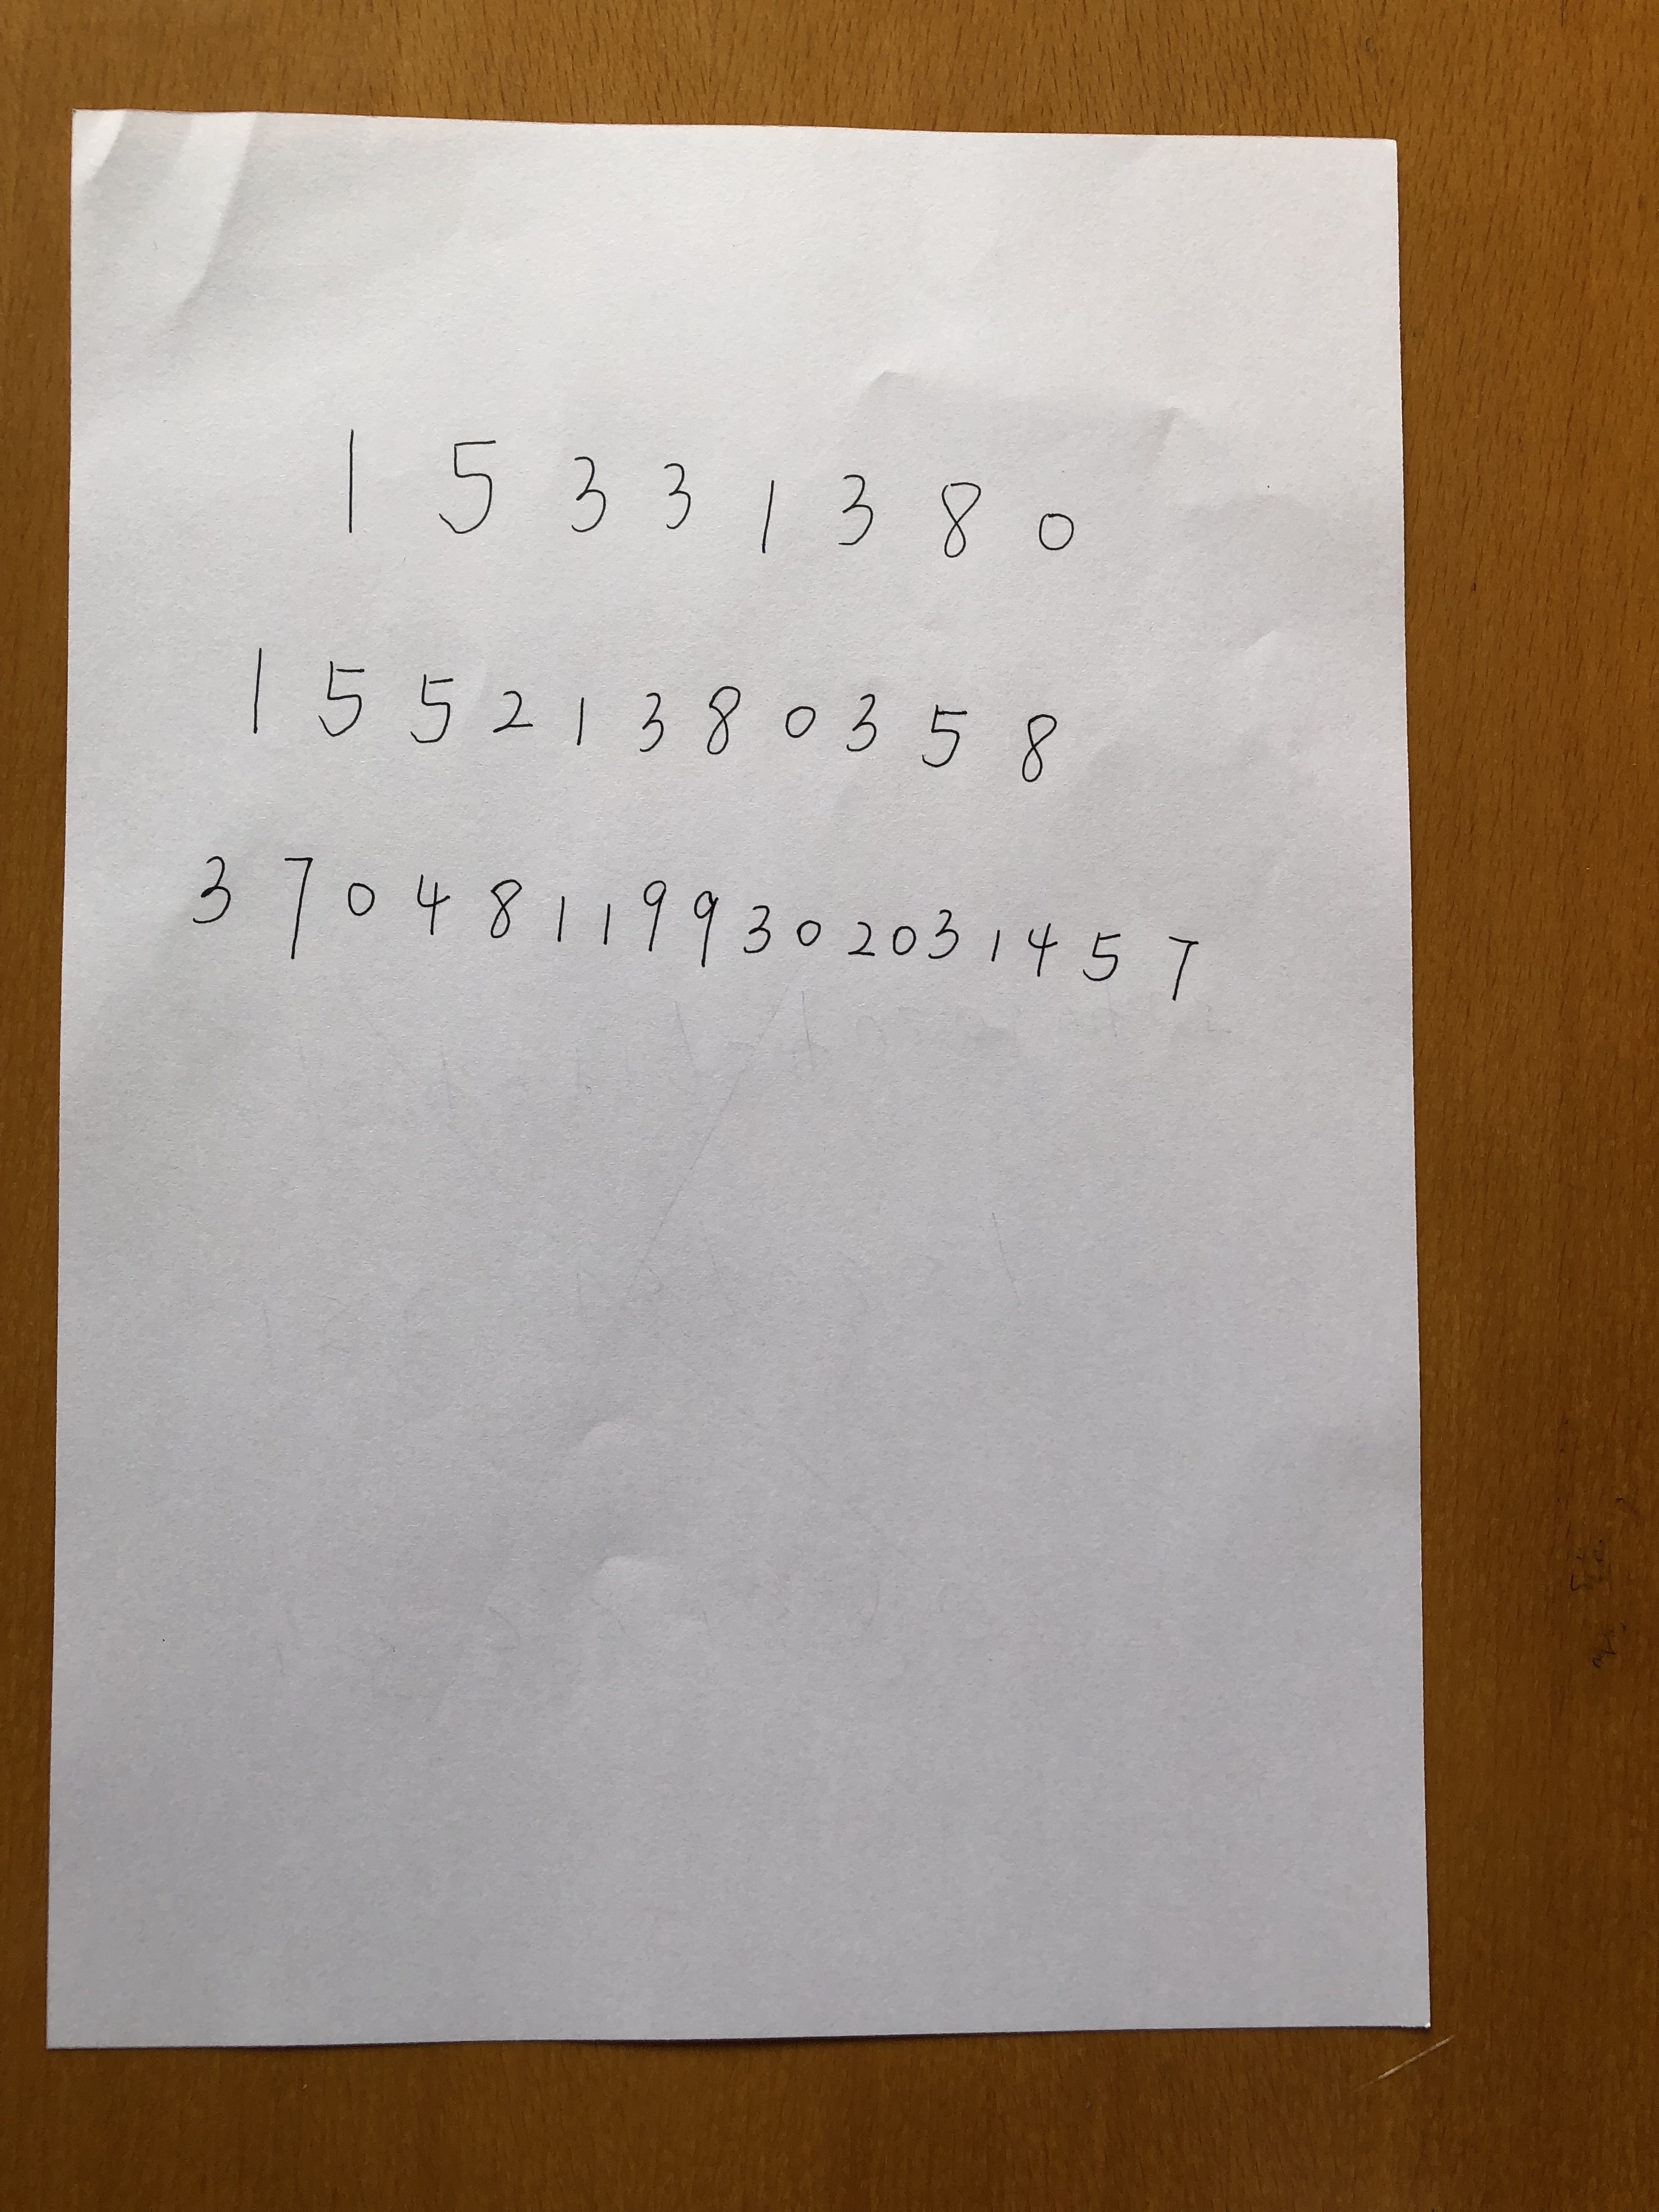 1 5 3 3 1 3 8 0
1 5 5 2 1 3 8 0 3 5 8
3 7 0 4 8 1 1 9 9 3 0 2 0 3 1 4 5 7